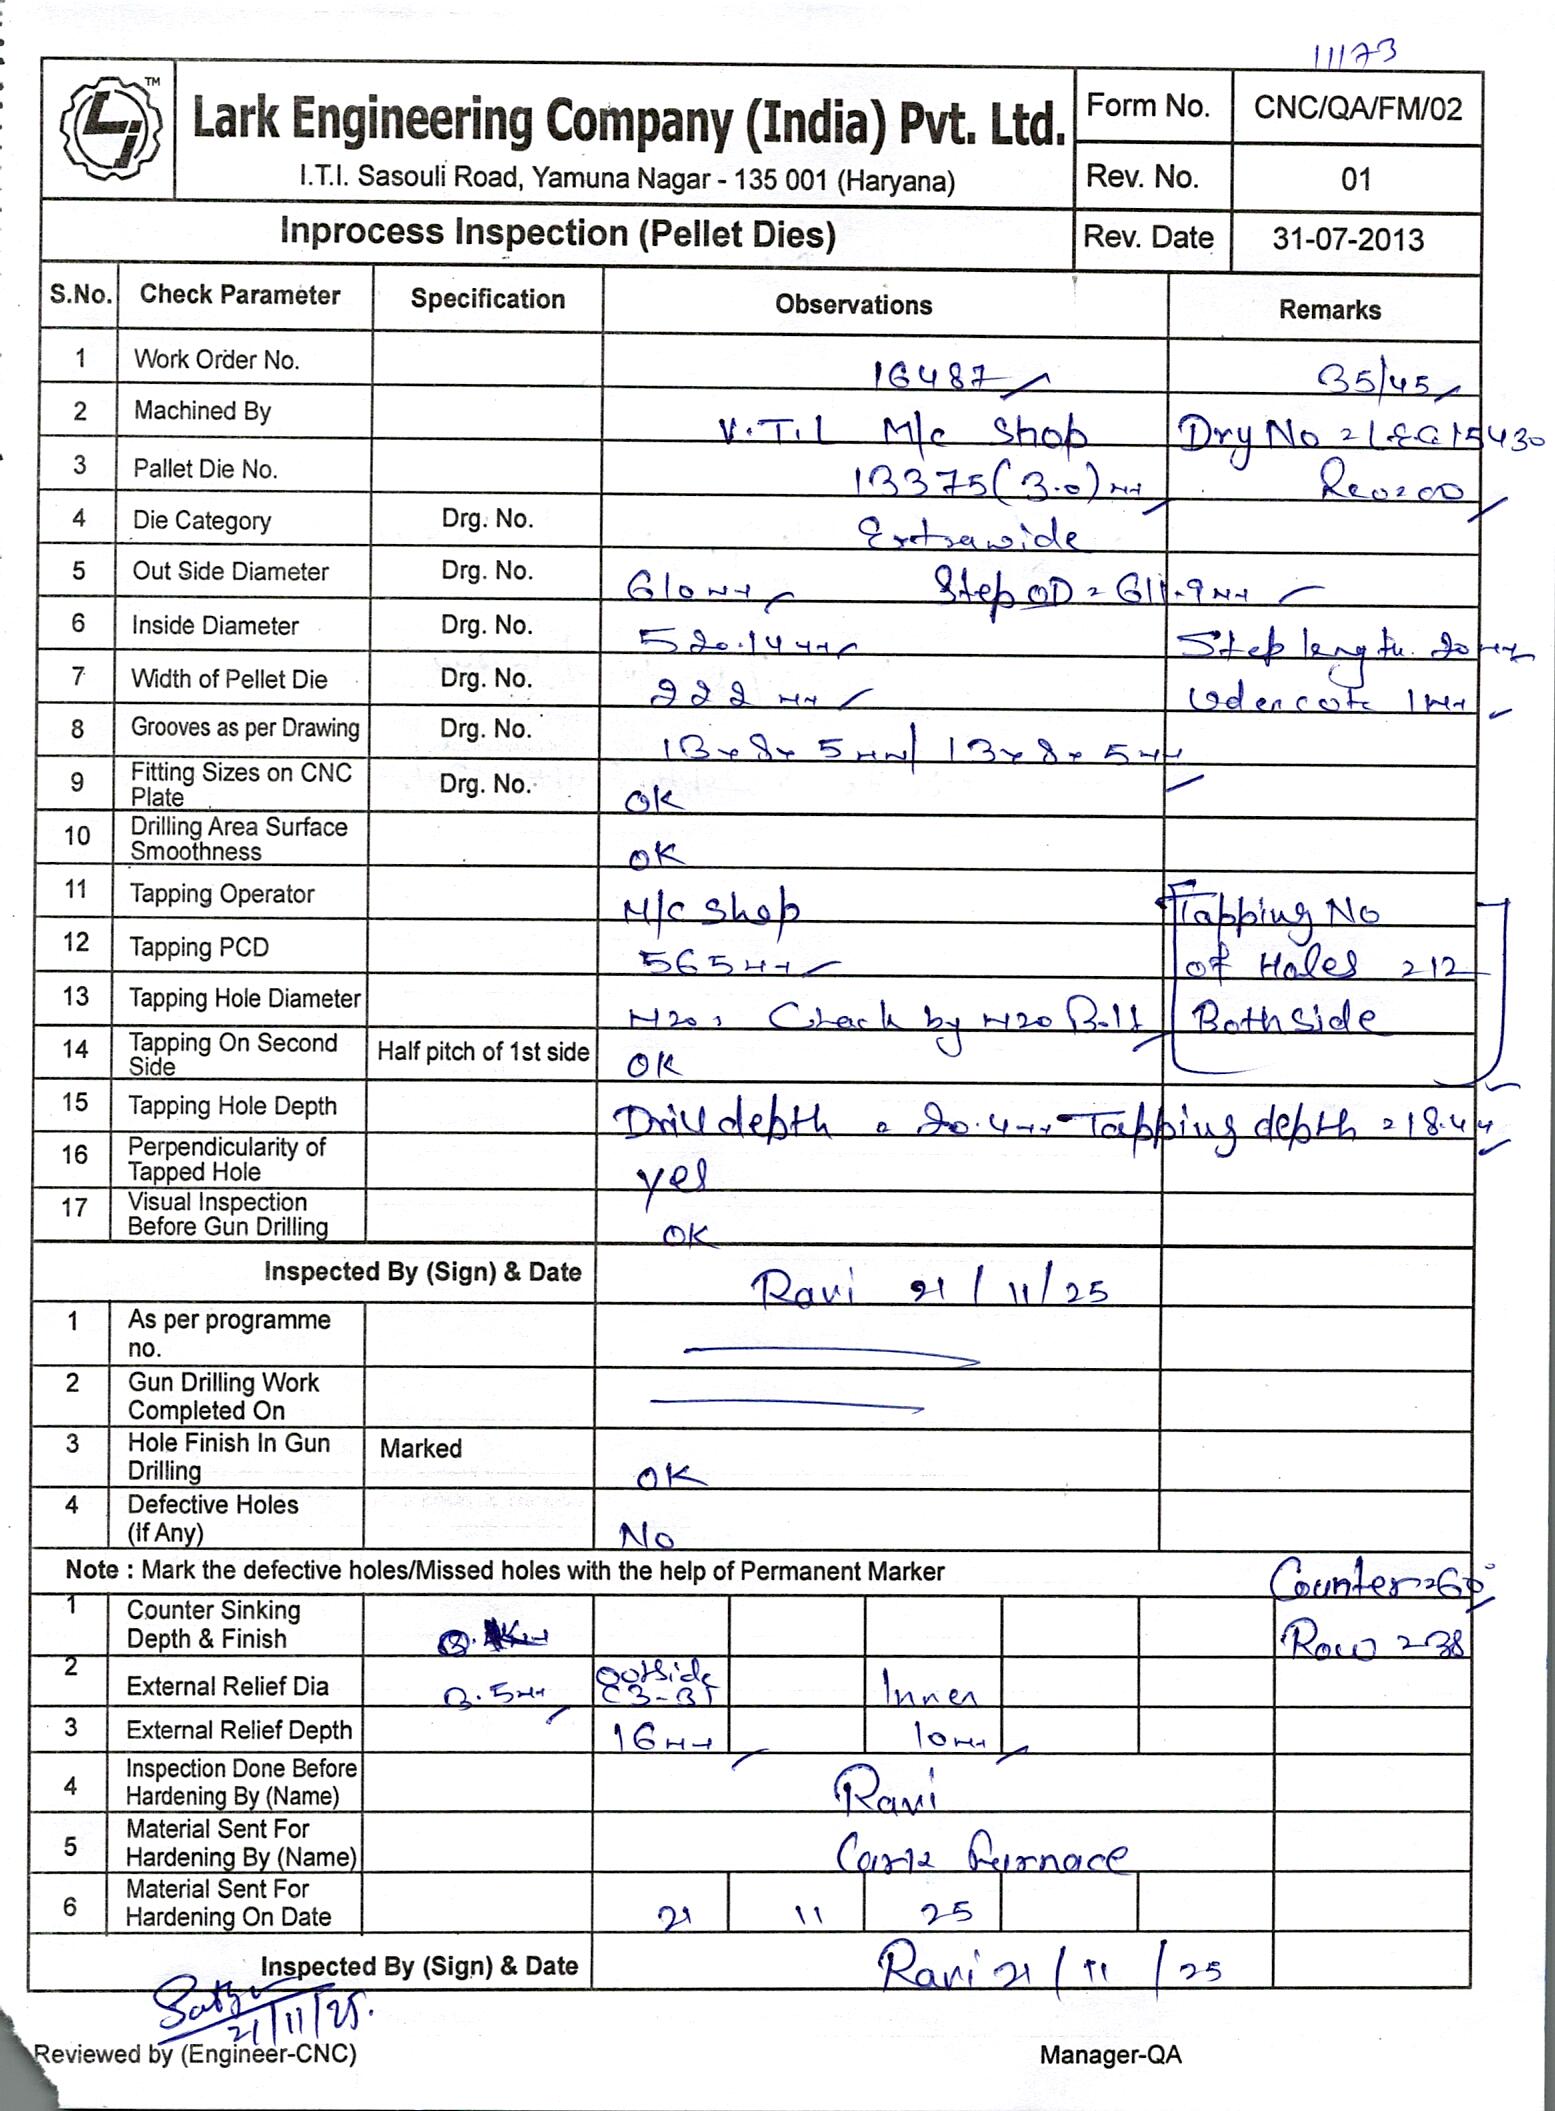 11173
TM
Lark Engineering Company (India) Pvt. Ltd.
I.T.I. Sasouli Road, Yamuna Nagar - 135 001 (Haryana)
Form No. CNC/QA/FM/02
Rev. No. 01
Inprocess Inspection (Pellet Dies)
Rev. Date 31-07-2013
S.No. Check Parameter Specification Observations Remarks
1 Work Order No. 16487 35/45
2 Machined By V.T.L M/c Shop Drg No = LEC15430
3 Pallet Die No. 13375 (3.0) mm Rev=00
4 Die Category Drg. No. Extrawide
5 Out Side Diameter Drg. No. 610mm Step OD = 611.9mm
6 Inside Diameter Drg. No. 520.14mm Step length. 20mm
7 Width of Pellet Die Drg. No. 222 mm Udercote 1mm
8 Grooves as per Drawing Drg. No. 13x8x5mm/ 13x8x5mm
9 Fitting Sizes on CNC Plate Drg. No. OK
10 Drilling Area Surface Smoothness OK
11 Tapping Operator M/C Shop Tapping No
12 Tapping PCD 565mm of Holes =12
13 Tapping Hole Diameter M20, Check by M20 Bolt Both Side
14 Tapping On Second Side Half pitch of 1st side OK
15 Tapping Hole Depth Drill depth = 20.4mm Tapping depth =18.44
16 Perpendicularity of Tapped Hole yes
17 Visual Inspection Before Gun Drilling OK
Inspected By (Sign) & Date Ravi 21/11/25
1 As per programme no.
2 Gun Drilling Work Completed On
3 Hole Finish In Gun Drilling Marked OK
4 Defective Holes (If Any) No
Note : Mark the defective holes/Missed holes with the help of Permanent Marker Counter=60°
1 Counter Sinking Depth & Finish Row =38
2 External Relief Dia 3.5mm outside (3-3) Inner
3 External Relief Depth 16mm 10mm
4 Inspection Done Before Hardening By (Name) Ravi
5 Material Sent For Hardening By (Name) Furnace
6 Material Sent For Hardening On Date 21 11 25
Inspected By (Sign) & Date Ravi 21/11/25
21/11/25.
Reviewed by (Engineer-CNC) Manager-QA